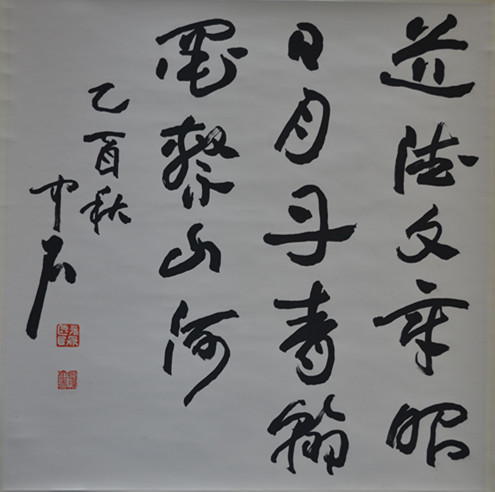 道德文章昭
日月丹青翰
墨繫山河
乙酉秋
中石